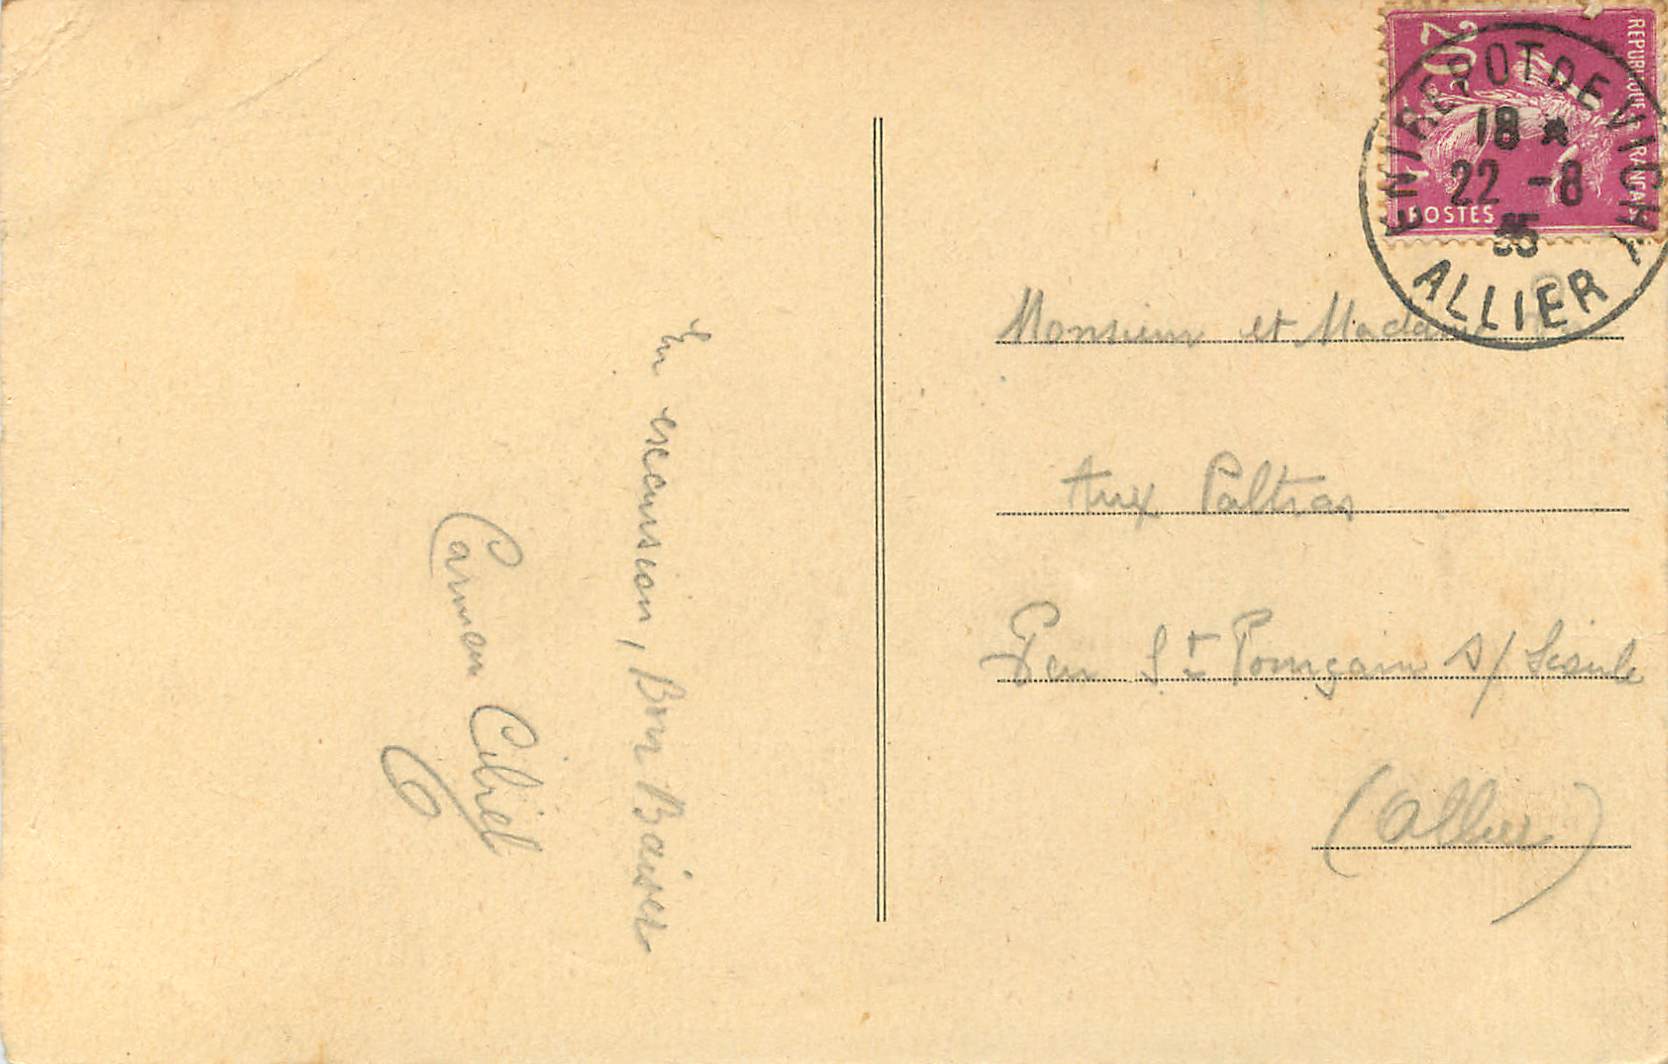 En excursion, Bon Baiser
Carmen
20c
REPUBLIQUE FRANÇAI
POSTES
ENTREPOT DE VICHY
18 *
22 -8
35
ALLIER
Monsieur et Madame
Aux Paltras
Par St Pourçain s/ Sioule
(Allier)